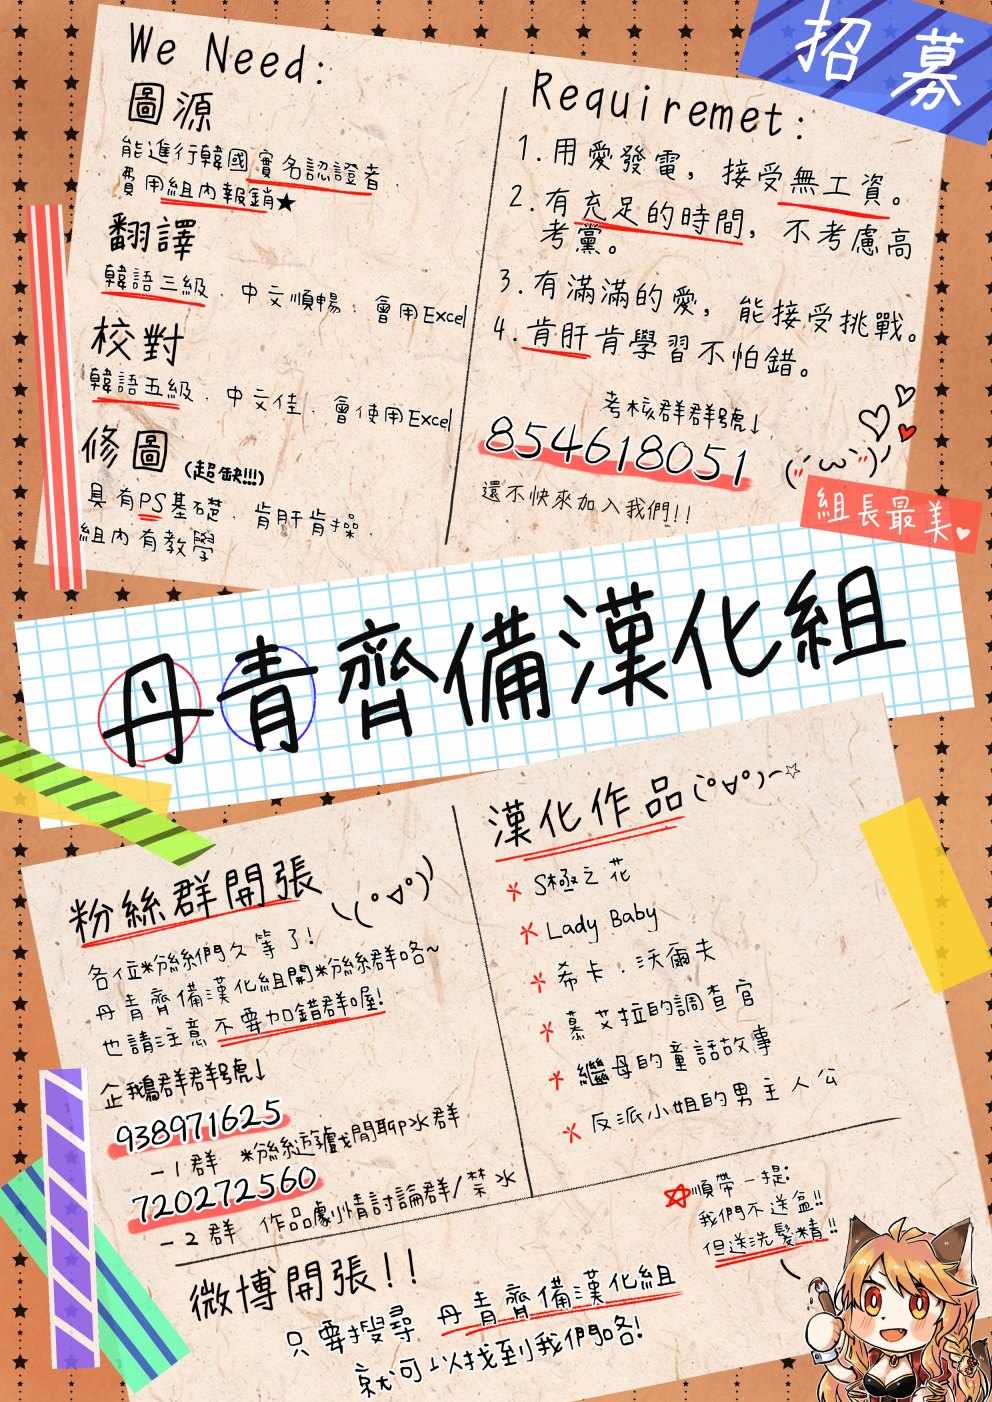 招募
We Need:
圖源
能進行韓國實名認證者.
費用組內報銷★
翻譯
韓語三級.中文順暢.會用Excel
校對
韓語五級.中文佳.會使用Excel
修圖(超缺!!!)
具有PS基礎.肯肝肯操.
組內有教學
Requiremet:
1.用愛發電,接受無工資。
2.有充足的時間,不考慮高
考黨。
3.有滿滿的愛,能接受挑戰。
4.肯肝肯學習不怕錯。
考核群群號↓
854618051
還不快來加入我們!!
組長最美♥
丹青齊備漢化組
粉絲群開張
各位粉絲們久等了!
丹青齊備漢化組開粉絲群咯~
也請注意不要加錯群喔!
企鵝群群號↓
938971625
-1群 粉絲遊戲閒聊吹水群
720272560
-2群 作品劇情討論群/禁水
漢化作品(°∀°)~☆
S極之花
Lady Baby
希卡.沃爾夫
慕艾拉的調查官
繼母的童話故事
反派小姐的男主人公
順帶一提:
我們不送盒!!
但送洗髮精!!
微博開張!!
只要搜尋 丹青齊備漢化組
就可以找到我們咯!